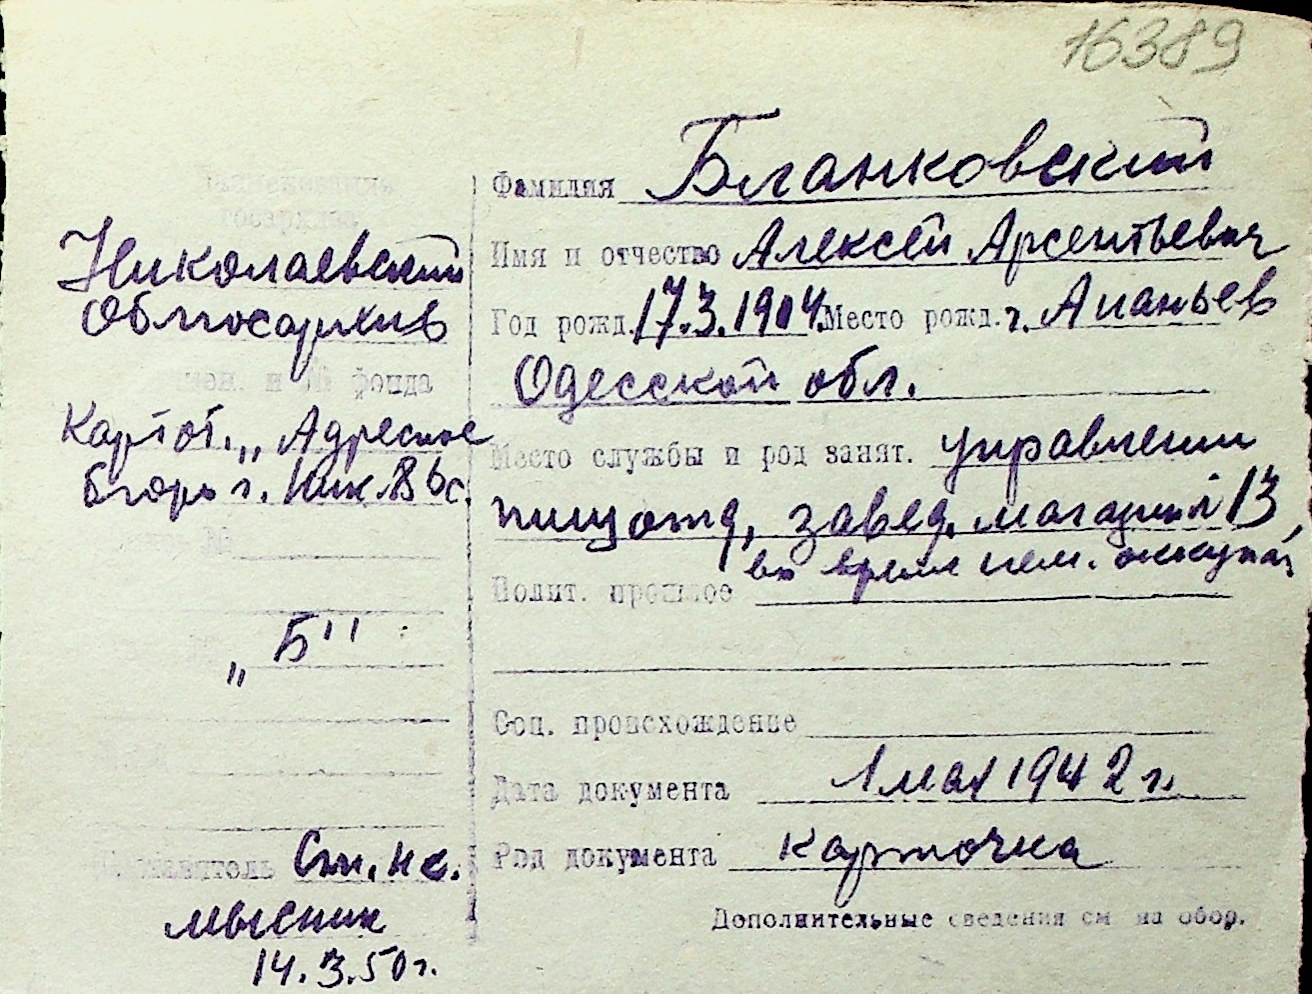 16389
Наименование
госархива
Николаевский
Облгосархив
наим. и № фонда
Картот. „Адресное
бюро г. Ник.
№
„Б"
Составитель Ст. н.с.
14.3.50 г.
Фамилия Бланковский
Имя и отчество Алексей Арсентьевич
Год рожд. 17.3.1904. Место рожд. г. Ананьев
Одесской обл.
Место службы и род занят. управлении
пищотд, завед. магазин 13
во время нем. оккупац.
Полит. прошлое
Соц. происхождение
Дата документа 1 мая 1942 г.
Род документа карточка
Дополнительные сведения см на обор.